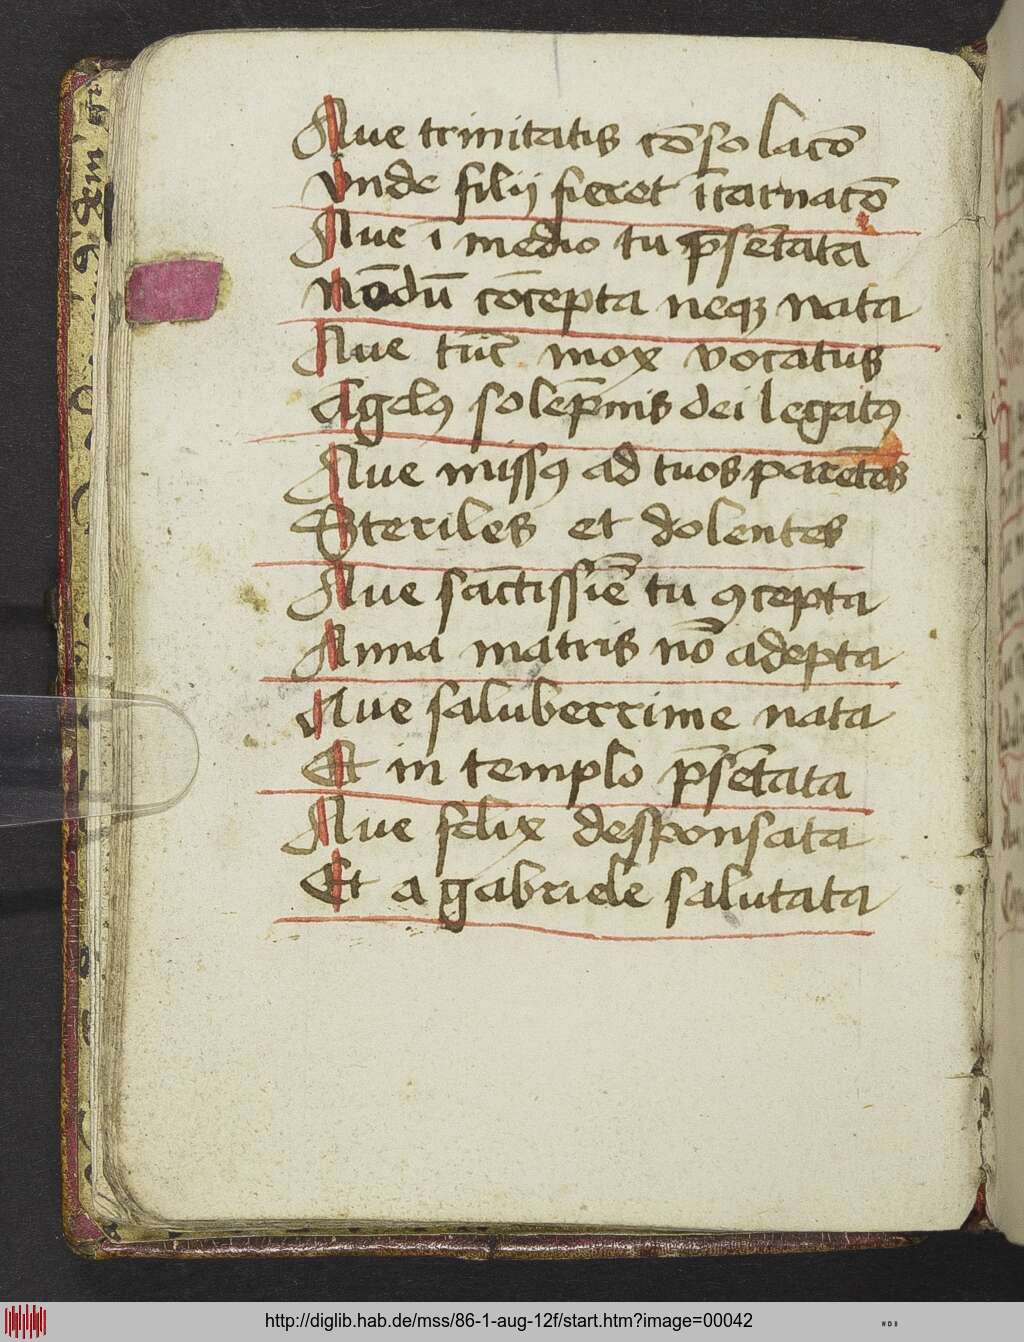 Aue trinitatis cōsolacō
Vnde filij fieret ītarnacō
Aue ī medio tu p̄sētata
Nōdū cōcepta neqꝫ nata
Aue tūc mox vocatus
Āgelꝯ solēpnis dei legatꝯ
Aue missꝯ ad tuos parētes
Steriles et dolentes
Aue sāctissīe tu ꝯcepta
Anna matris nō adepta
Aue saluberrime nata
Et in templo p̄sētata
Aue felix desponsata
Et a gabriele salutata
http://diglib.hab.de/mss/86-1-aug-12f/start.htm?image=00042